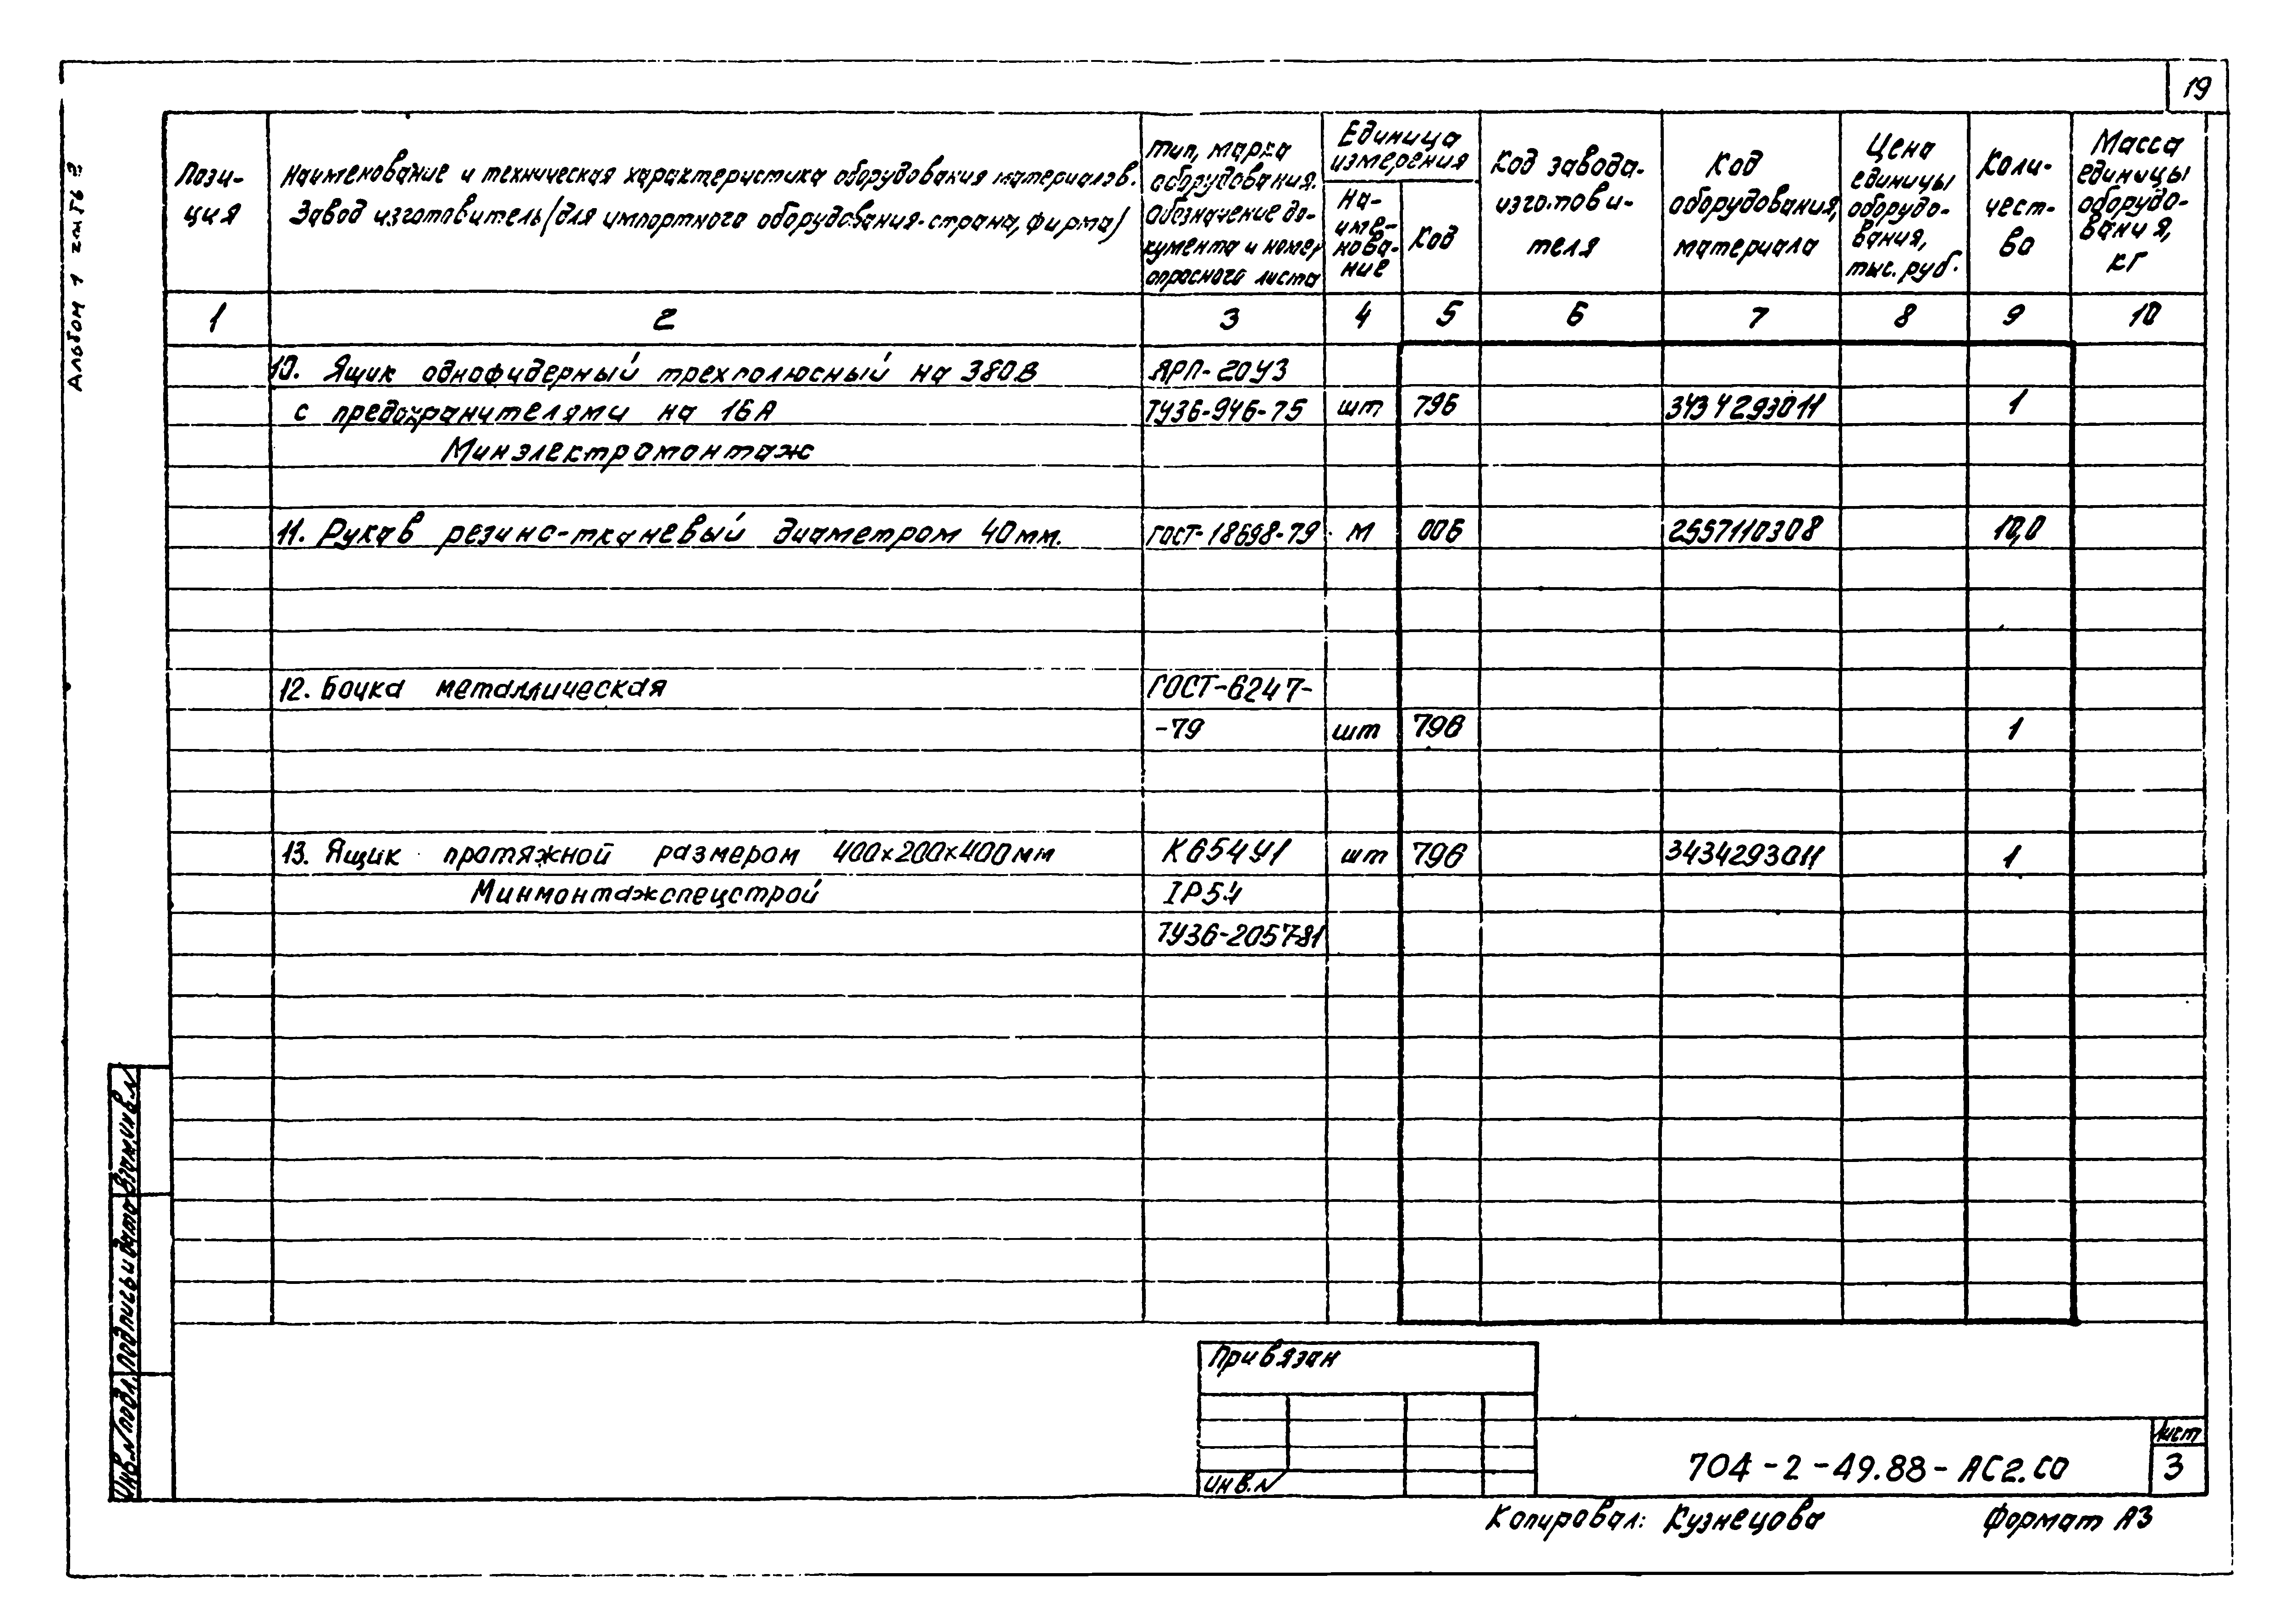 19
Альбом 1
Пози-
ция
Наименование и техническая характеристика оборудования материалов.
Завод изготовитель (для импортного оборудования-страна, фирма)
тип, марка
оборудования.
Обозначение до-
кумента и номер
опросного листа
Единица
измерения
На-
име-
нова-
ние
Код
Код завода-
изготови-
теля
Код
оборудования,
материала
Цена
единицы
оборудо-
вания,
тыс. руб.
Коли-
чест-
во
Масса
единицы
оборудо-
вания,
кг
1 2 3 4 5 6 7 8 9 10
10. Ящик однофидерный трехполюсный на 380В ЯРП-20У3
с предохранителями на 16А ТУ36-946-75 шт 796 3434293011 1
Минэлектромонтаж
11. Рукав резино-тканевый диаметром 40мм. ГОСТ-18698-79 м 006 2557110308 10,0
12. Бочка металлическая ГОСТ-6247-
-79 шт 796 1
13. Ящик протяжной размером 400х200х400мм К654У1 шт 796 3434293011 1
Минмонтажспецстрой IP54
ТУ36-2057-81
Взам.инв.N
Подпись и дата
Инв.N подл.
Привязан
Инв.N
704-2-49.88-АС2.СО
Лист
3
Копировал: Кузнецова Формат А3